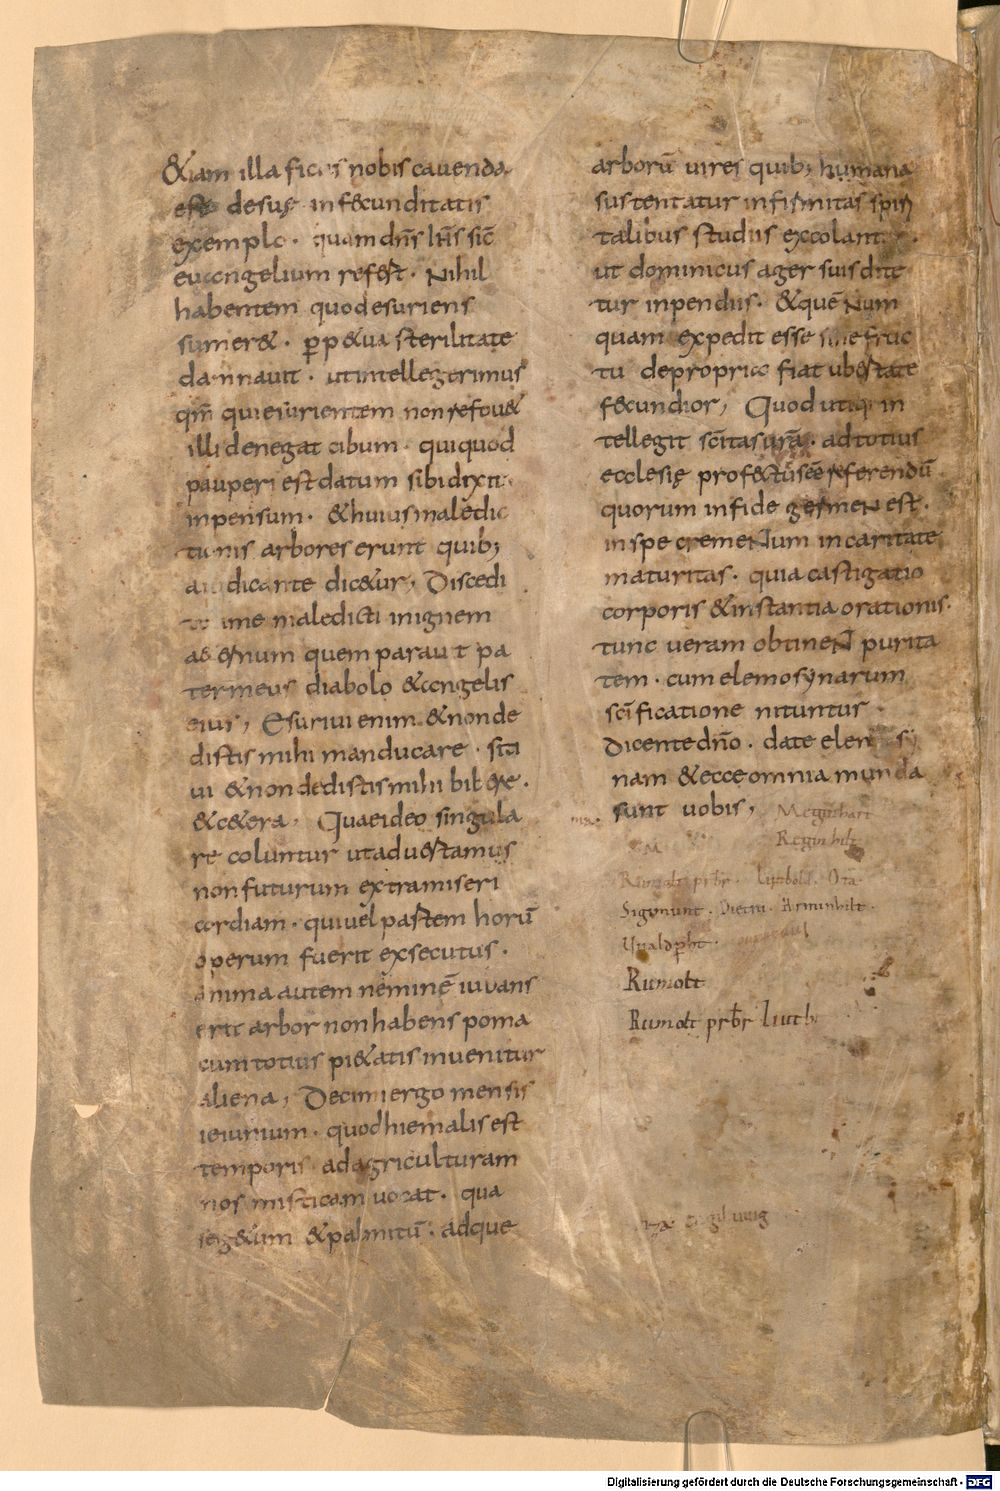 &iam illa ficus nobis cauenda
est desuę infęcunditatis
exemplo · quam dñs ih̃s sic̃
euangelium refert · Nihil
habentem quod esuriens
sumer& · ꝑp&ua sterilitate
damnauit · ut intellegerimus
qm̃ qui esurientem non refou&
illi denegat cibum · qui quod
pauperi est datum sibi dixit
inpensum · & huius maledic
tionis arbores erunt quib;
a iudicante dic&ur, Discedi
te a me maledicti in ignem
a&ernum quem parauit pa
ter meus diabolo & angelis
eius, Esuriui enim & non de
distis mihi manducare · siti
ui & non dedistis mihi biber& ·
& c&era, Quae ideo singula
re coluntur ut ad uestamus
non futurum extra miseri
cordiam · qui uel partem horũ
operum fuerit exsecutus ·
anima autem neminẽ iuuans
erit arbor non habens poma
cum totius pi&atis inuenitur
aliena, Decimi ergo mensis
ieiunium · quod hiemalis est
temporis ad agriculturam
nos misticam uocat · qua
& palmitũ · adque
arborũ uires quib; humana
sustentatur infirmitas spiri
talibus studiis excolant
ut dominicus ager suis dite
tur inpendiis · & quẽ Num
quam expedit esse sine fruc
tu de proprio fiat ubertate
fęcundior, Quod utiq; in
tellegit sc̃itas urã · ad totius
ecclesię prof&tũ sẽe referendũ
quorum in fide germeN est ·
in spe cremeNtum in caritate
maturitas · quia castigatio
corporis & instantia orationis ·
tunc ueram obtineNt purita
tem · cum elemosynarum
sc̃ificatione nituntur ·
dicente dño · date elemosy
nam & ecce omnia munda
sunt uobis,
Meginhart
Reginhilt
Rumolt prbr · Liutbold · Ota
Sigimunt · Dietni · Arminhilt ·
Uualdpħt ·
Rumolt
Rumolt prbr Liutb